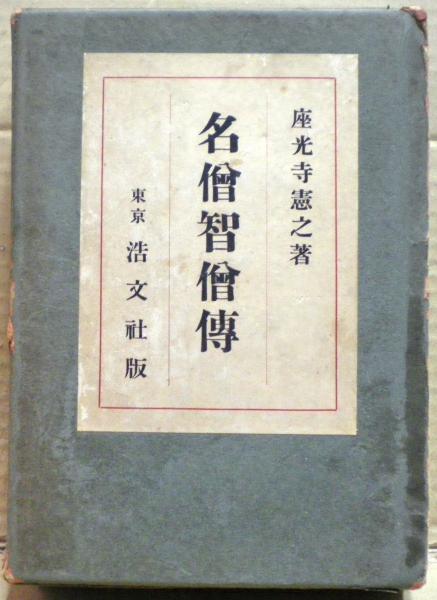 座光寺憲之著
名僧智僧傳
東京 浩文社版